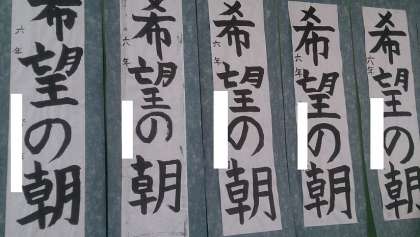 希望の朝
六年
希望の朝
六年
希望の朝
六年
希望の朝
六年
希望の朝
六年